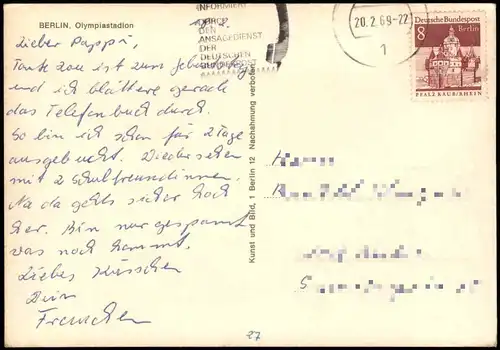 BERLIN, Olympiastadion
INFORMIERT
DURCH
DEN
ANSAGEDIENST
DER
DEUTSCHEN
BUNDESPOST
20.2.69-22
1
Deutsche Bundespost
8 Berlin
PFALZ KAUB/RHEIN
Lieber Pappi,
ist zum
und ich blättere gerade
das Telefonbuch durch.
So bin ich schon für 2 Tage
ausgebucht. Wiedersehen
mit 2 Schulfreundinnen.
Na da gehts sicher hoch
her. Bin nur gespannt
was noch kommt.
Liebes Küsschen
Dein
Frauchen
Kunst und Bild, 1 Berlin 12 Nachahmung verboten
27